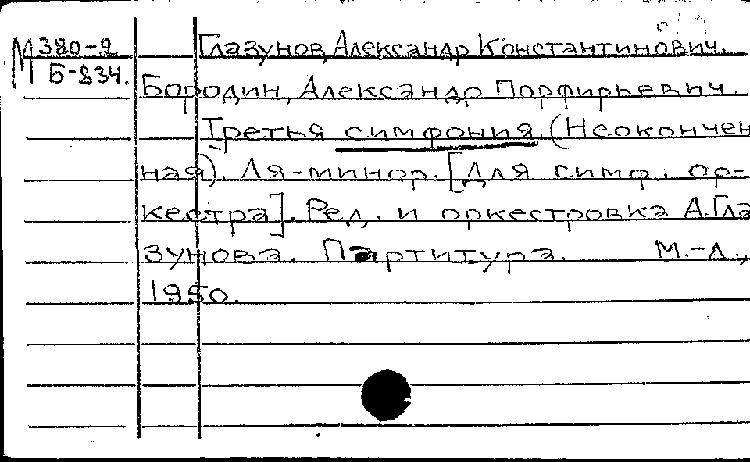 М 380-2 Глазунов, Александр Константинович.
Б-834. Бородин, Александр Порфирьевич.
Третья симфония. (Неокончен
ная). Ля-минор. [Для симф. ор-
кестра]. Ред. и оркестровка А.Гла
зунова. Партитура. М.-Л.,
1950.